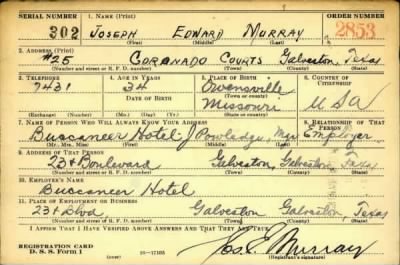 SERIAL NUMBER 1. NAME (Print) ORDER NUMBER
302 JOSEPH EDWARD MURRAY 2853
(First) (Middle) (Last)
2. ADDRESS (Print)
#25 CORONADO COURTS Galveston, Texas
(Number and street or R. F. D. number) (Town) (County) (State)
3. TELEPHONE 4. AGE IN YEARS 5. PLACE OF BIRTH 6. COUNTRY OF CITIZENSHIP
7431 34 Owensville
DATE OF BIRTH (Town or county)
Missouri USA
(Mo.) (Day) (Yr.) (State or country)
7. NAME OF PERSON WHO WILL ALWAYS KNOW YOUR ADDRESS 8. RELATIONSHIP OF THAT PERSON
Buccaneer Hotel-J Powledge, Mgr Employer
(Mr., Mrs., Miss) (First) (Middle) (Last)
9. ADDRESS OF THAT PERSON
23+ Boulevard Galveston, Galveston, Texas
(Number and street or R. F. D. number) (Town) (County) (State)
10. EMPLOYER'S NAME
Buccaneer Hotel
11. PLACE OF EMPLOYMENT OR BUSINESS
23+ Blvd Galveston Galveston, Texas
(Number and street or R. F. D. number) (Town) (County) (State)
I AFFIRM THAT I HAVE VERIFIED ABOVE ANSWERS AND THAT THEY ARE TRUE.
REGISTRATION CARD
D. S. S. Form 1 16-17105 Jos. E. Murray
(Registrant's signature)